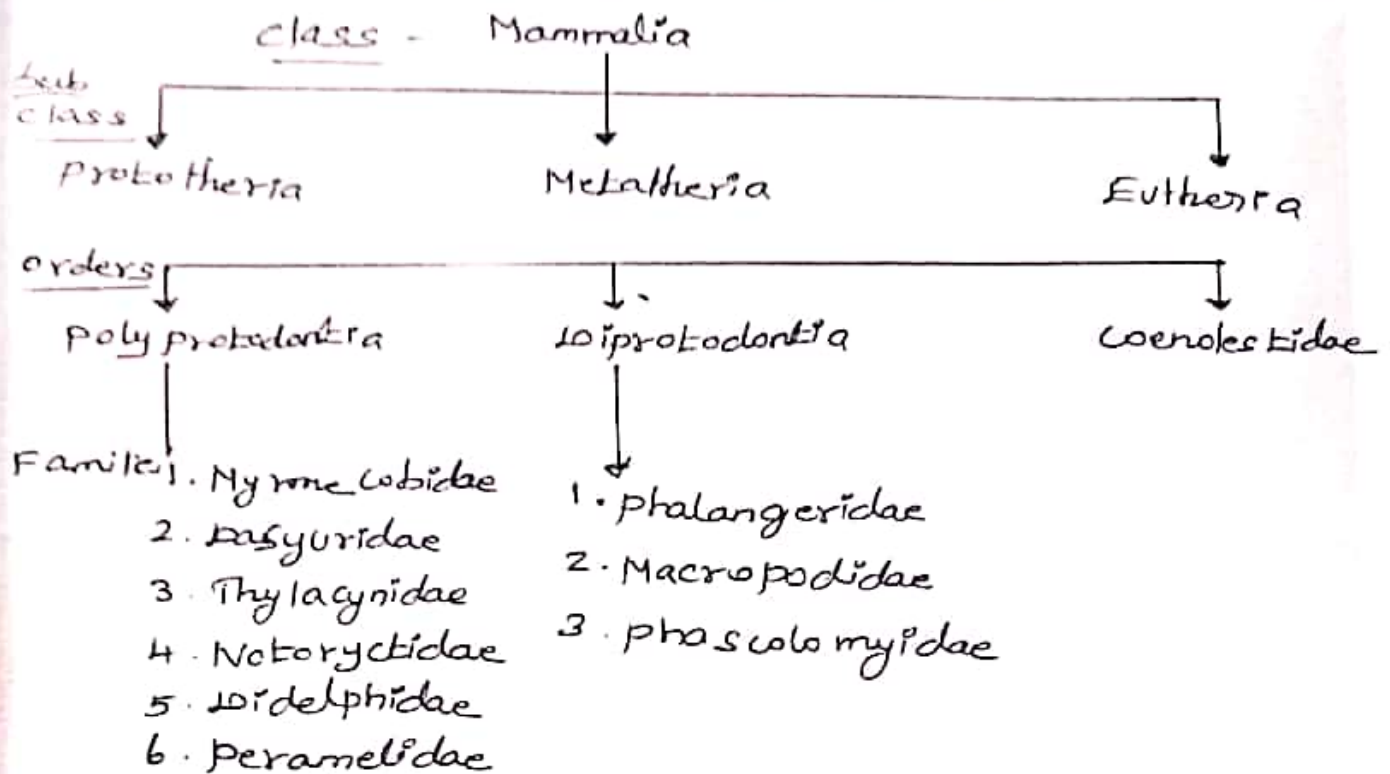 class - Mammalia
Sub
class
Prototheria Metatheria Eutheria
orders
Polyprotodontia Diprotodontia Coenolestidae
Familes
1. Myrmecobidae
2. Dasyuridae
3. Thylacynidae
4. Notoryctidae
5. Didelphidae
6. Peramelidae
1. Phalangeridae
2. Macropodidae
3. Phascolomyidae